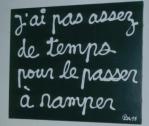 j'ai pas assez
de temps
pour le passer
à ramper